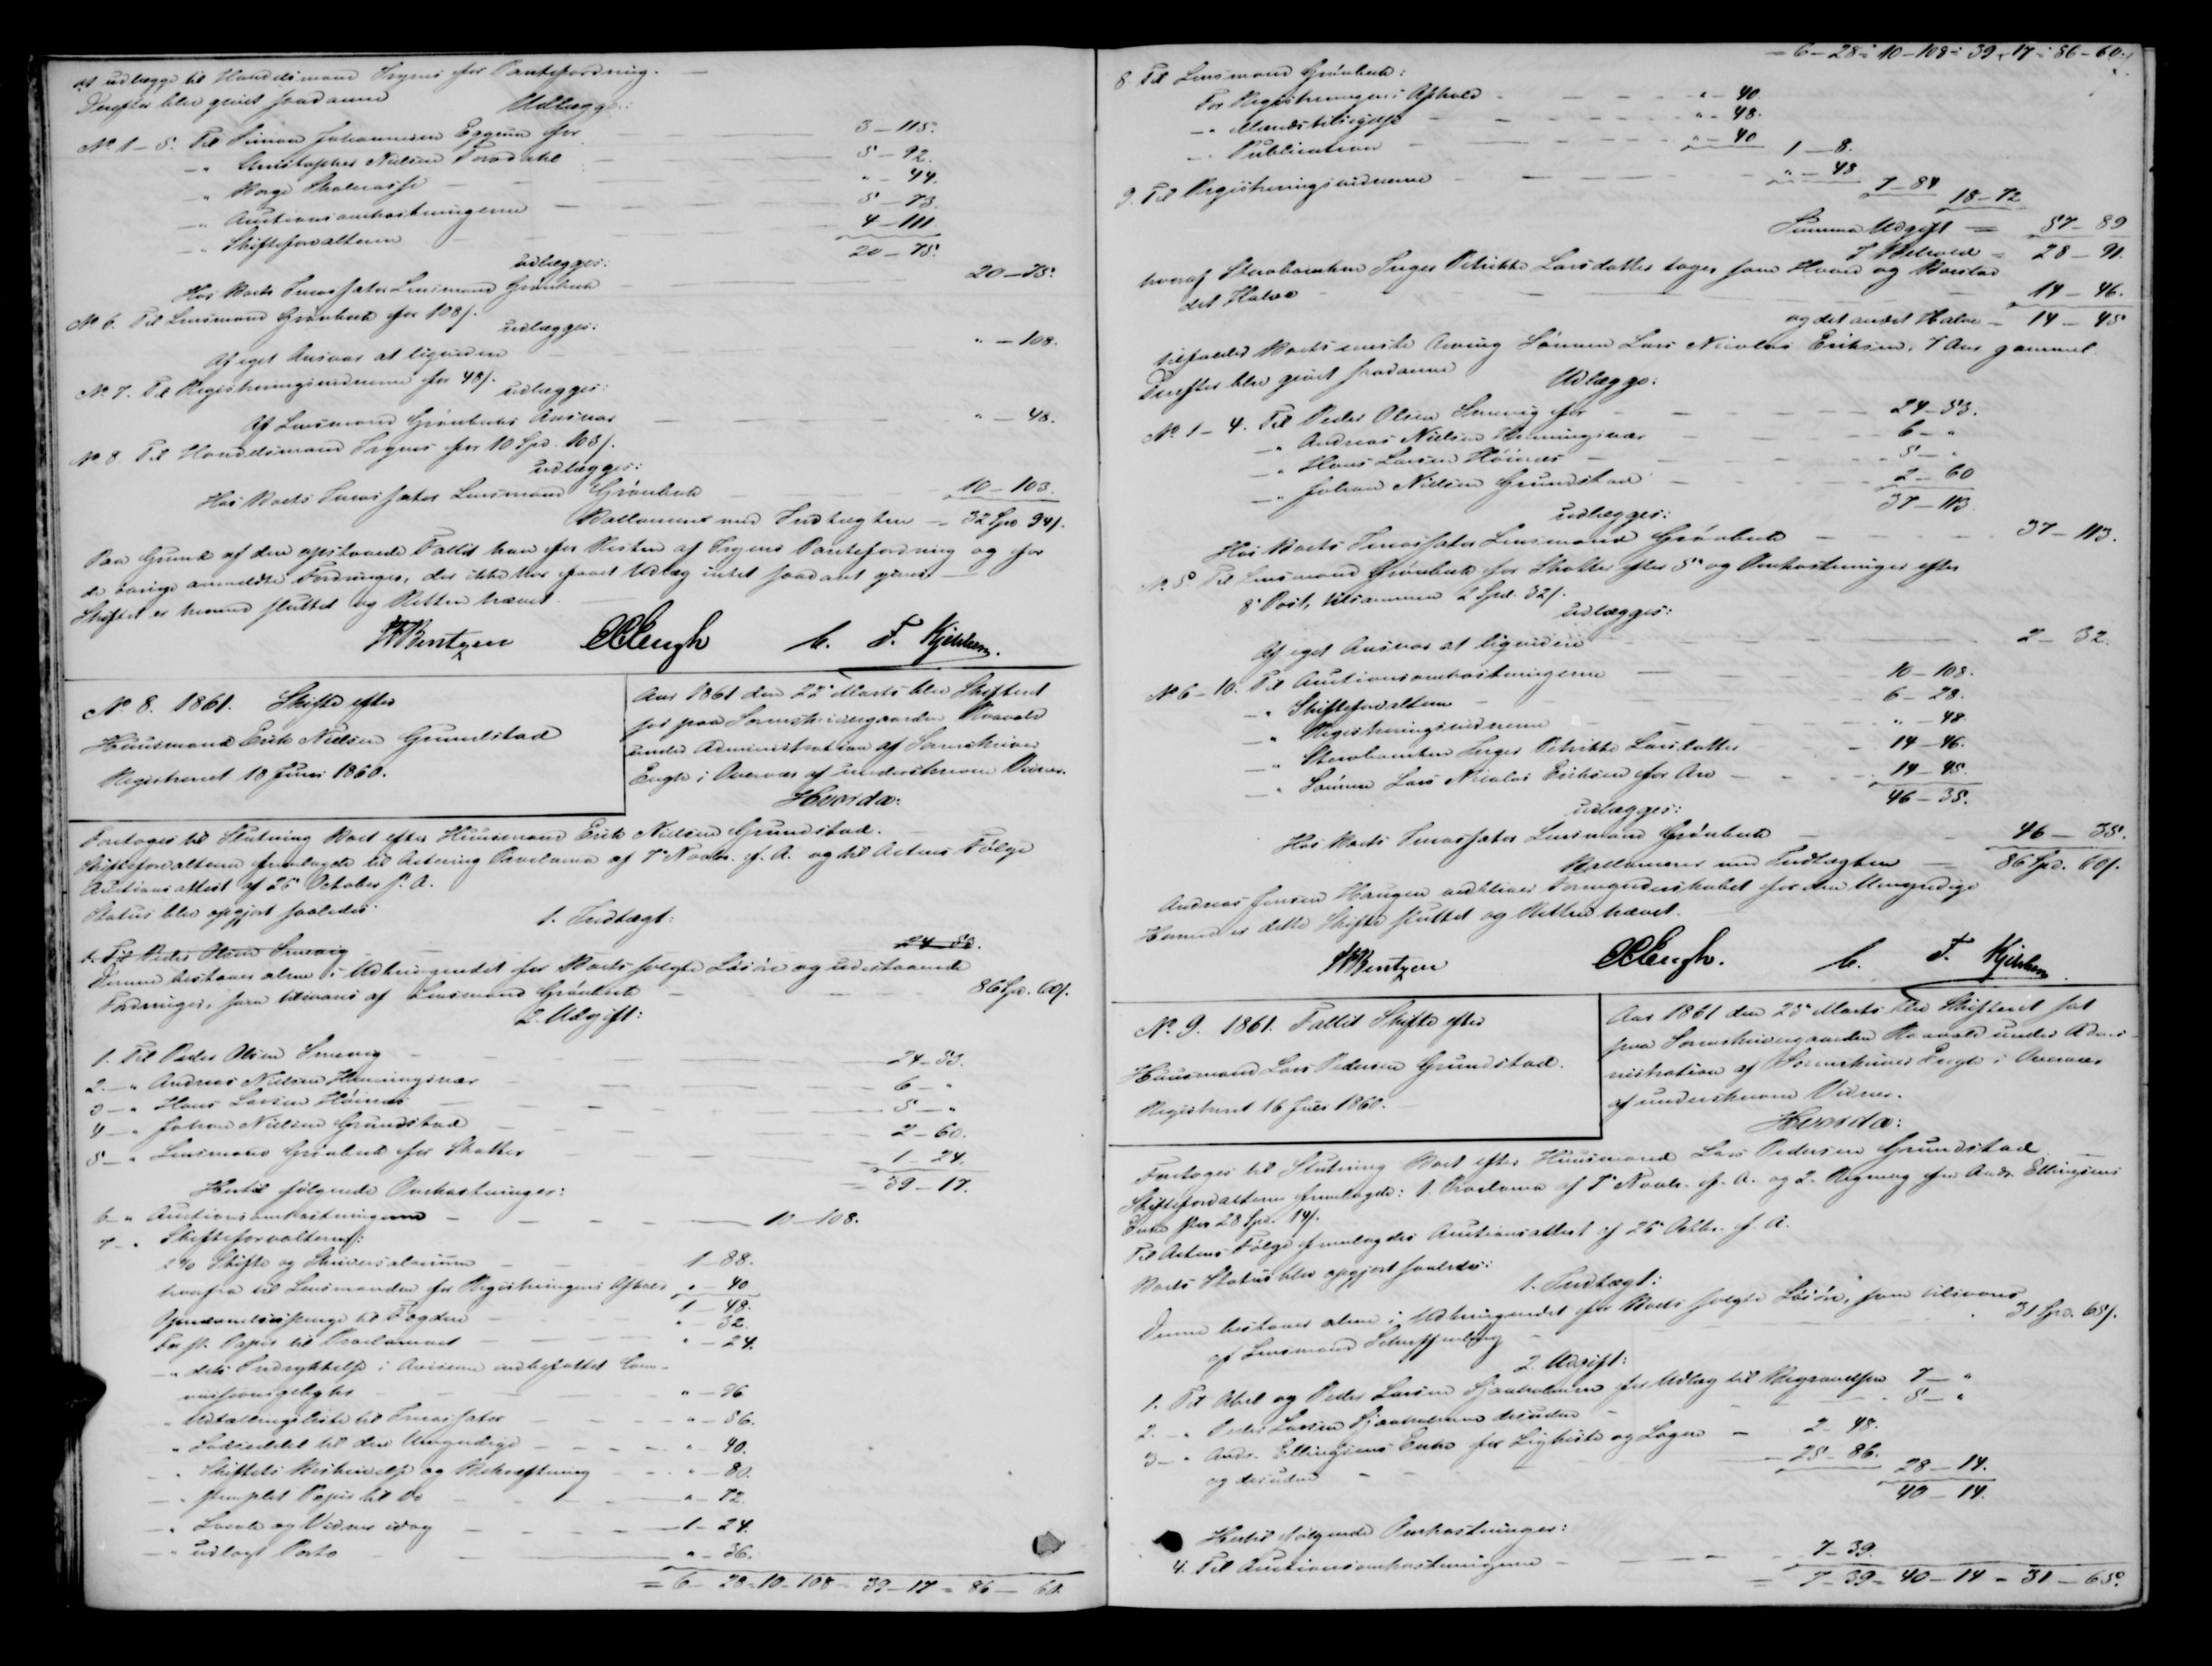 at udlægge til Handelsmand Trynis for Pantefordring. —
Derefter blev gjort saadanne
Udlægge:
No 1 – 5. Til Simon Johannesen Eggum for — 3 – 115.
– " Christopher Nielsen Torsdahl — 5 – 92.
– " Norge Skolecasse — " – 44.
– " Auctionsomkostningerne — 5 – 73.
– " Skifteforvalteren — 4 – 111.
20 – 75.
udlægges:
Hos Boets Incassator Lensmand Grønbeck — 20 – 75.
No 6. Til Lensmand Grønbeck for 108/.
udlægges:
Af eget Ansvar at liqvidere — " – 108.
No 7. Til Registreringsvidnerne for 48/.
udlægges:
Af Lensmand Grønbecks Ansvar — " – 48.
No 8. Til Handelsmand Trynis for 10 Spd. 103/.
udlægges:
Hos Boets Incassator Lensmand Grønbeck — 10 – 103.
Ballancerer med Indtægten — 32 Spd 94/.
Paa Grund af den opstaaede Fallit kan for Resten af Trynis Pantefordring og for
de øvrige anmeldte Fordringer, der ikke har faaet Udlæg intet saadant gives. —
Skiftet er hermed sluttet og Retten hævet.
Bentzen Engh C. F. Kjelsberg.
No 8. 1861. Skifte efter
Huusmand Erik Nielsen Grundstad
Registreret 18 Juni 1860.
Aar 1861 den 22de Marts blev Skifteret
sat paa Sorenskrivergaarden
under Administration af Sorenskriver
Engh i Overvær af underskrevne Vidner.
Hvorda:
Foretoges til Slutning Boet efter Huusmand Erik Nielsen Grundstad.
Skifteforvalteren fremlagde til Actering Proclama af 7de Novbr. f. A. og til Actens Følge
Auctionsattest af 26de October f. A.
Status blev opgjort saaledes:
1. Indtægt:
1. Til Peder Olsen Smevig — 24 – 53.
Denne bestaaer alene i Udbringendet for Boets solgte Løsøre og udestaaende
Fordringer, som tilsvares af Lensmand Grønbeck — 86 Spd. 60/.
2. Udgift:
1. Til Peder Olsen Smevig — 24 – 53.
2. – " Andreas Nielsen Henningsvær — 6 – "
3 – " Hans Larsen Höinæs — 5 – "
4 – " Johan Nielsen Grundstad — 2 – 60.
5 – " Lensmand Grønbeck for Skatter — 1 – 24.
= 39 – 17.
Hertil følgende Omkostninger:
6 – " Auctionsomkostningerne — 10 – 108.
7 – " Skifteforvalteren:
2 % Skifte og Skriversalarium — 1 – 88.
herfra til Lensmanden for Registreringens Afhold " – 40
1 – 48.
Opnævnelsespenge til Fogden — " – 32.
For st. Papir til Proclamaet — " – 24.
– " dets Indrykkelse i Aviserne indbefattet Com-
missionsgebyhr — " – 96
– " Udtællingsliste til Incassator — " – 56.
– " Lodseddel til den Umyndige — " – 40.
– " Skiftets Beskrivelse og Bekræftning — " – 80.
– " stemplet Papir til Do — " – 72.
– " Locale og Vidner idag — 1 – 24.
– " udlagt Porto — " – 36.
= 6 – 28 = 10 – 108 = 39 – 17 = 86 – 60.
= 6 – 28 = 10 – 108 = 39 – 17 = 86 – 60.
8. Til Lensmand Grønbeck:
For Registreringens Afhold — " – 40
– " Mændstilsigelse — " – 48.
– " Publication — " – 40
1 – 8.
9. Til Registreringsvidnerne — " – 48
7 – 84
18 – 72
Summa Udgift = 57 – 89
I Behold = 28 – 91.
hvoraf Stervboenken Inger Petrikke Larsdatter tager som Hoved og Boeslod
det Halve — 14 – 46.
og det andet Halve — 14 – 45
tilfalder Boets eneste Arving Sönnen Lars Nicolai Eriksen, 7 Aar gammel.
Derefter blev gjort saadanne
Udlægge:
No 1 – 4. Til Peder Olsen Smevig for — 24 – 53.
– " Andreas Nielsen Henningsvær — 6 – "
– " Hans Larsen Höinæs — 5 – "
– " Johan Nielsen Grundstad — 2 – 60
37 – 113.
udlægges:
Hos Boets Incassator Lensmand Grønbeck — 37 – 113.
No 5. Til Lensmand Grønbeck for Skatter efter 5te og Omkostninger efter
8de Post, tilsammen 2 Spd. 32/.
udlægges:
Af eget Ansvar at liqvidere — 2 – 32.
No 6 – 10. Til Auctionsomkostningerne — 10 – 108.
– " Skifteforvalteren — 6 – 28.
– " Registreringsvidnerne — " – 48
– " Stervboenken Inger Petrikke Larsdatter — 14 – 46.
– " Sönnen Lars Nicolai Eriksen for Arv — 14 – 45.
46 – 35.
udlægges:
Hos Boets Incassator Lensmand Grønbeck — 46 – 35.
Ballancerer med Indtægten — 86 Spd. 60/.
Andreas Jensen Haugen vedbliver Formynderskabet for den Umyndige
Hermed er dette Skifte sluttet og Retten hævet.
Bentzen Engh. C. F. Kjelsberg.
No 9. 1861. Fallit Skifte efter
Huusmand Lars Pedersen Grundstad.
Registreret 16 Juli 1860.
Aar 1861 den 25de Marts blev Skifteret sat
paa Sorenskrivergaarden under Admi-
nistration af Sorenskriver Engh i Overvær
af underskrevne Vidner.
Hvorda:
Foretoges til Slutning Boet efter Huusmand Lars Pedersen Grundstad
Skifteforvalteren fremlagde: 1. Proclama af 7de Novbr. f. A. og 2. Regning fra Andr. Ellingsens
Enke stor 28 Spd. 14/.
Til Actens Følge fremlagdes Auctionsattest af 26de Octbr. f. A.
Boets Status blev opgjort saaledes:
1. Indtægt:
Denne bestaaer alene i Udbringendet for Boets solgte Løsøre, som tilsvares
af Lensmand — 31 Spd. 65/.
2. Udgift:
1. Til Abel og Peder Larsen for Udlæg til Begravelsen 7 – "
2. – " Peder Larsen desuden — 5 – "
3 – " Andr. Ellingsens Enke for Ligkiste og Lagen — 2 – 48.
og desuden — 25 – 86.
28 – 14.
40 – 14.
Hertil følgende Omkostninger:
4. Til Auctionsomkostningerne — 7 – 39.
= 7 – 39 = 40 – 14 = 31 – 65.